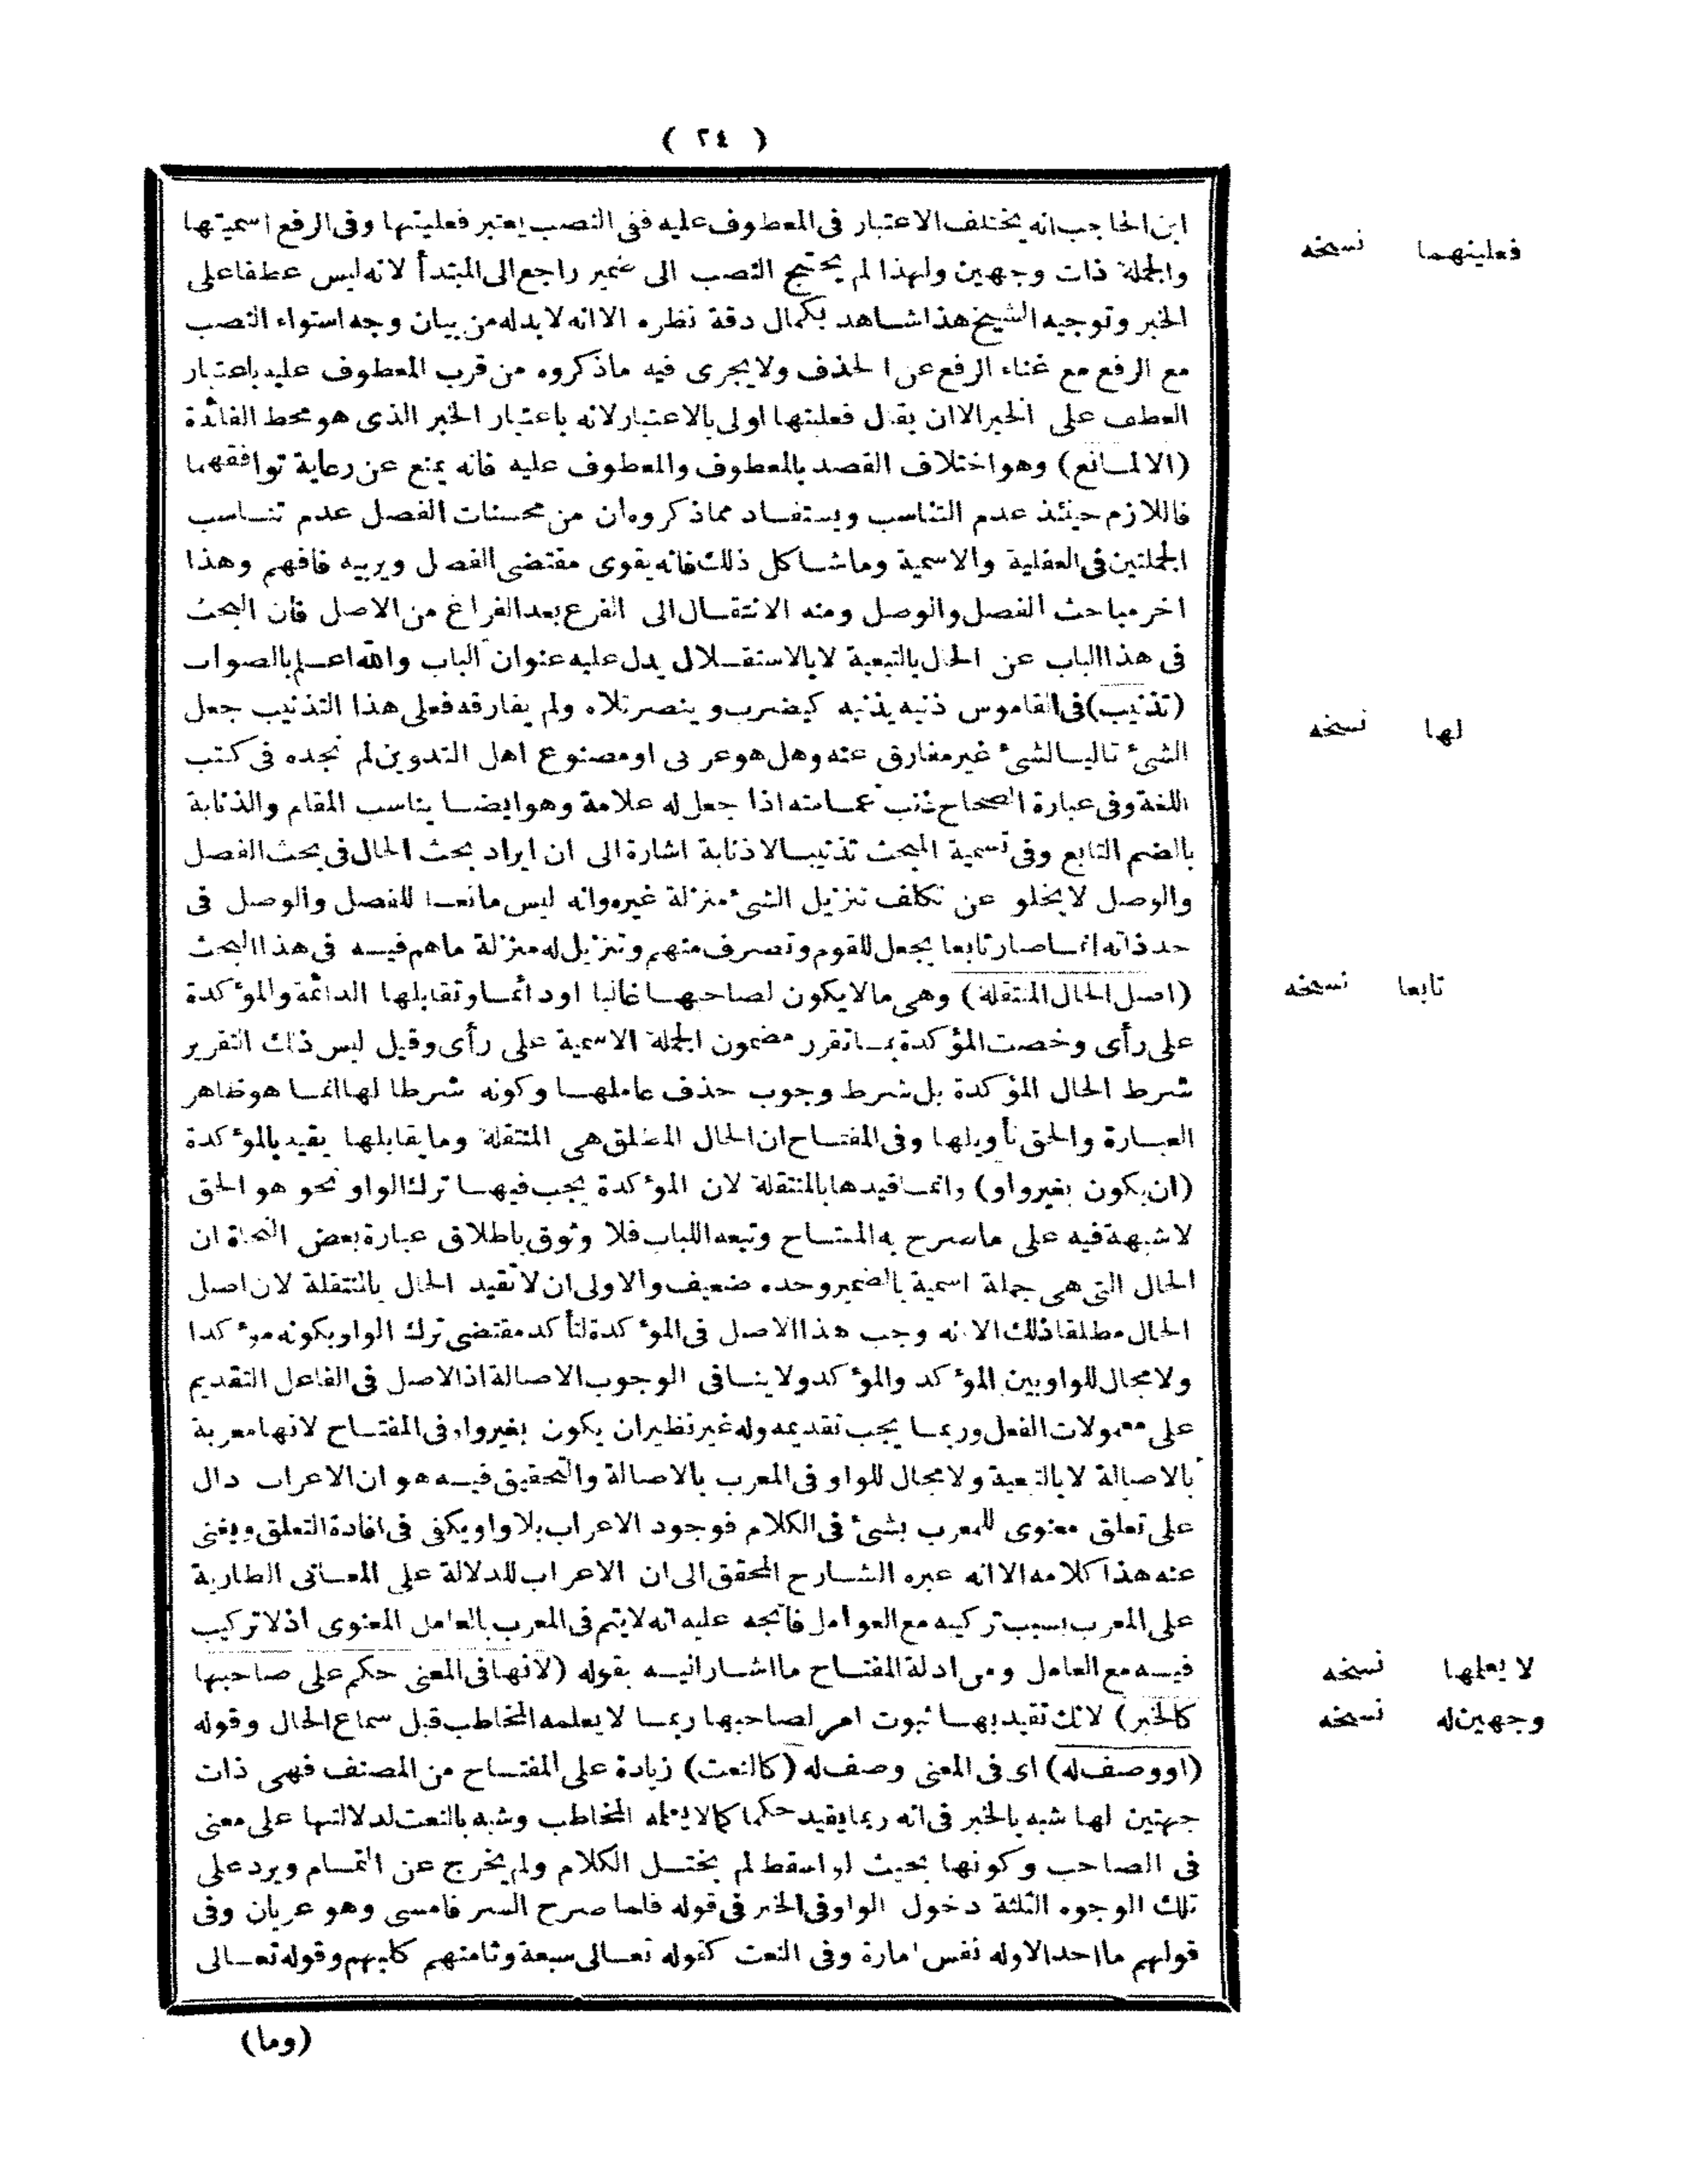 ( ٢٤ )
ابن الحاجب انه يختلف الاعتبار فى المعطوف عليه ففى النصب يعتبر فعليتها وفى الرفع اسميتها
فعليتهما نسخه
والجملة ذات وجهين ولهذا لم يحتج النصب الى ضمير راجع الى المبتدأ لانه ليس عطفا على
الخبر وتوجيه الشيخ هذا شاهد بكمال دقة نظره الا انه لا بدله من بيان وجه استواء النصب
مع الرفع مع غناء الرفع عن الحذف ولا يجرى فيه ماذكروه من قرب المعطوف عليه باعتبار
العطف على الخبر الا ان يقال فعليتها اولى بالاعتبار لانه باعتبار الخبر الذى هو محط الفائدة
(الا لمانع) وهو اختلاف القصد بالمعطوف والمعطوف عليه فانه يمنع عن رعاية توافقهما
فاللازم حينئذ عدم التناسب ويستفاد مما ذكروه ان من محسنات الفصل عدم تناسب
الجملتين فى العقلية والاسمية وما شاكل ذلك فانه يقوى مقتضى الفصل ويربيه فافهم وهذا
اخر مباحث الفصل والوصل ومنه الانتقال الى الفرع بعد الفراغ من الاصل فان البحث
فى هذا الباب عن الحال بالتبعية لا بالاستقلال يدل عليه عنوان الباب والله اعلم بالصواب
(تذنيب) فى القاموس ذنبه يذنبه كيضرب وينصر تلاه ولم يفارقه فعلى هذا التذنيب جعل
لها نسخه
الشئ تاليا لشئ غير مفارق عنه وهل هو عربى او مصنوع اهل التدوين لم نجده فى كتب
اللغة وفى عبارة الصحاح ذنب عمامته اذا جعل له علامة وهو ايضا يناسب المقام والذنابة
بالضم التابع وفى تسمية المبحث تذنيبا لا ذنابة اشارة الى ان ايراد بحث الحال فى بحث الفصل
والوصل لا يخلو عن تكلف تنزيل الشئ منزلة غيره وانه ليس مانعا للفصل والوصل فى
حد ذاته انما صار تابعا بجعل للقوم وتصرف منهم وتنزيل له منزلة ماهم فيه فى هذا البحث
(اصل الحال المنتقلة) وهى مالا يكون لصاحبها غالبا او دائما وتقابلها الدائمة والمؤكدة
تابعا نسخه
على رأى وخصت المؤكدة بما تقرر مضمون الجملة الاسمية على رأى وقيل ليس ذاك التقرير
شرط الحال المؤكدة بل شرط وجوب حذف عاملها وكونه شرطا لها انما هو ظاهر
العبارة والحق تأويلها وفى المفتاح ان الحال المطلق هى المنتقلة وما يقابلها يقيد بالمؤكدة
(ان يكون بغير واو) وانما قيدها بالمنتقلة لان المؤكدة يجب فيها ترك الواو نحو هو الحق
لا شبهة فيه على ما صرح به المفتاح وتبعه اللباب فلا وثوق باطلاق عبارة بعض النحاة ان
الحال التى هى جملة اسمية بالضمير وحده ضعيف والاولى ان لا تقيد الحال بالمنتقلة لان اصل
الحال مطلقا ذلك الا انه وجب هذا الاصل فى المؤكدة لتأكد مقتضى ترك الواو بكونه مؤكدا
ولا مجال للواو بين المؤكد والمؤكد ولا ينافى الوجوب الاصالة اذ الاصل فى الفاعل التقديم
على معمولات الفعل وربما يجب تقديمه وله غير نظير ان يكون بغير واو فى المفتاح لانها معربة
بالاصالة لا بالتبعية ولا مجال للواو فى المعرب بالاصالة والتحقيق فيه هو ان الاعراب دال
على تعلق معنوى للمعرب بشئ فى الكلام فوجود الاعراب بلا واو يكفى فى افادة التعلق ويغنى
عنه هذا كلامه الا انه عبره الشارح المحقق الى ان الاعراب للدلالة على المعانى الطارية
على المعرب بسبب تركيبه مع العوامل فاتجه عليه انه لا يتم فى المعرب بالعامل المعنوى اذ لا تركيب
فيه مع العامل ومن ادلة المفتاح ما اشار اليه بقوله (لانها فى المعنى حكم على صاحبها
لا يعلمها نسخه
كالخبر) لانك تفيد بها ثبوت امر لصاحبها ربما لا يعلمه المخاطب قبل سماع الحال وقوله
وجهين له نسخه
(او وصف له) اى فى المعنى وصف له (كالنعت) زيادة على المفتاح من المصنف فهى ذات
جهتين لها شبه بالخبر فى انه ربما يفيد حكما كالا يعلمه المخاطب وشبه بالنعت لدلالتها على معنى
فى الصاحب وكونها بحيث لو اسقط لم يختل الكلام ولم يخرج عن التمام ويرد على
تلك الوجوه الثلثة دخول الواو فى الخبر فى قوله فلما صرح السر فامسى وهو عريان وفى
قولهم ما احد الا وله نفس امارة وفى النعت كقوله تعالى سبعة وثامنهم كلبهم وقوله تعالى
(وما)